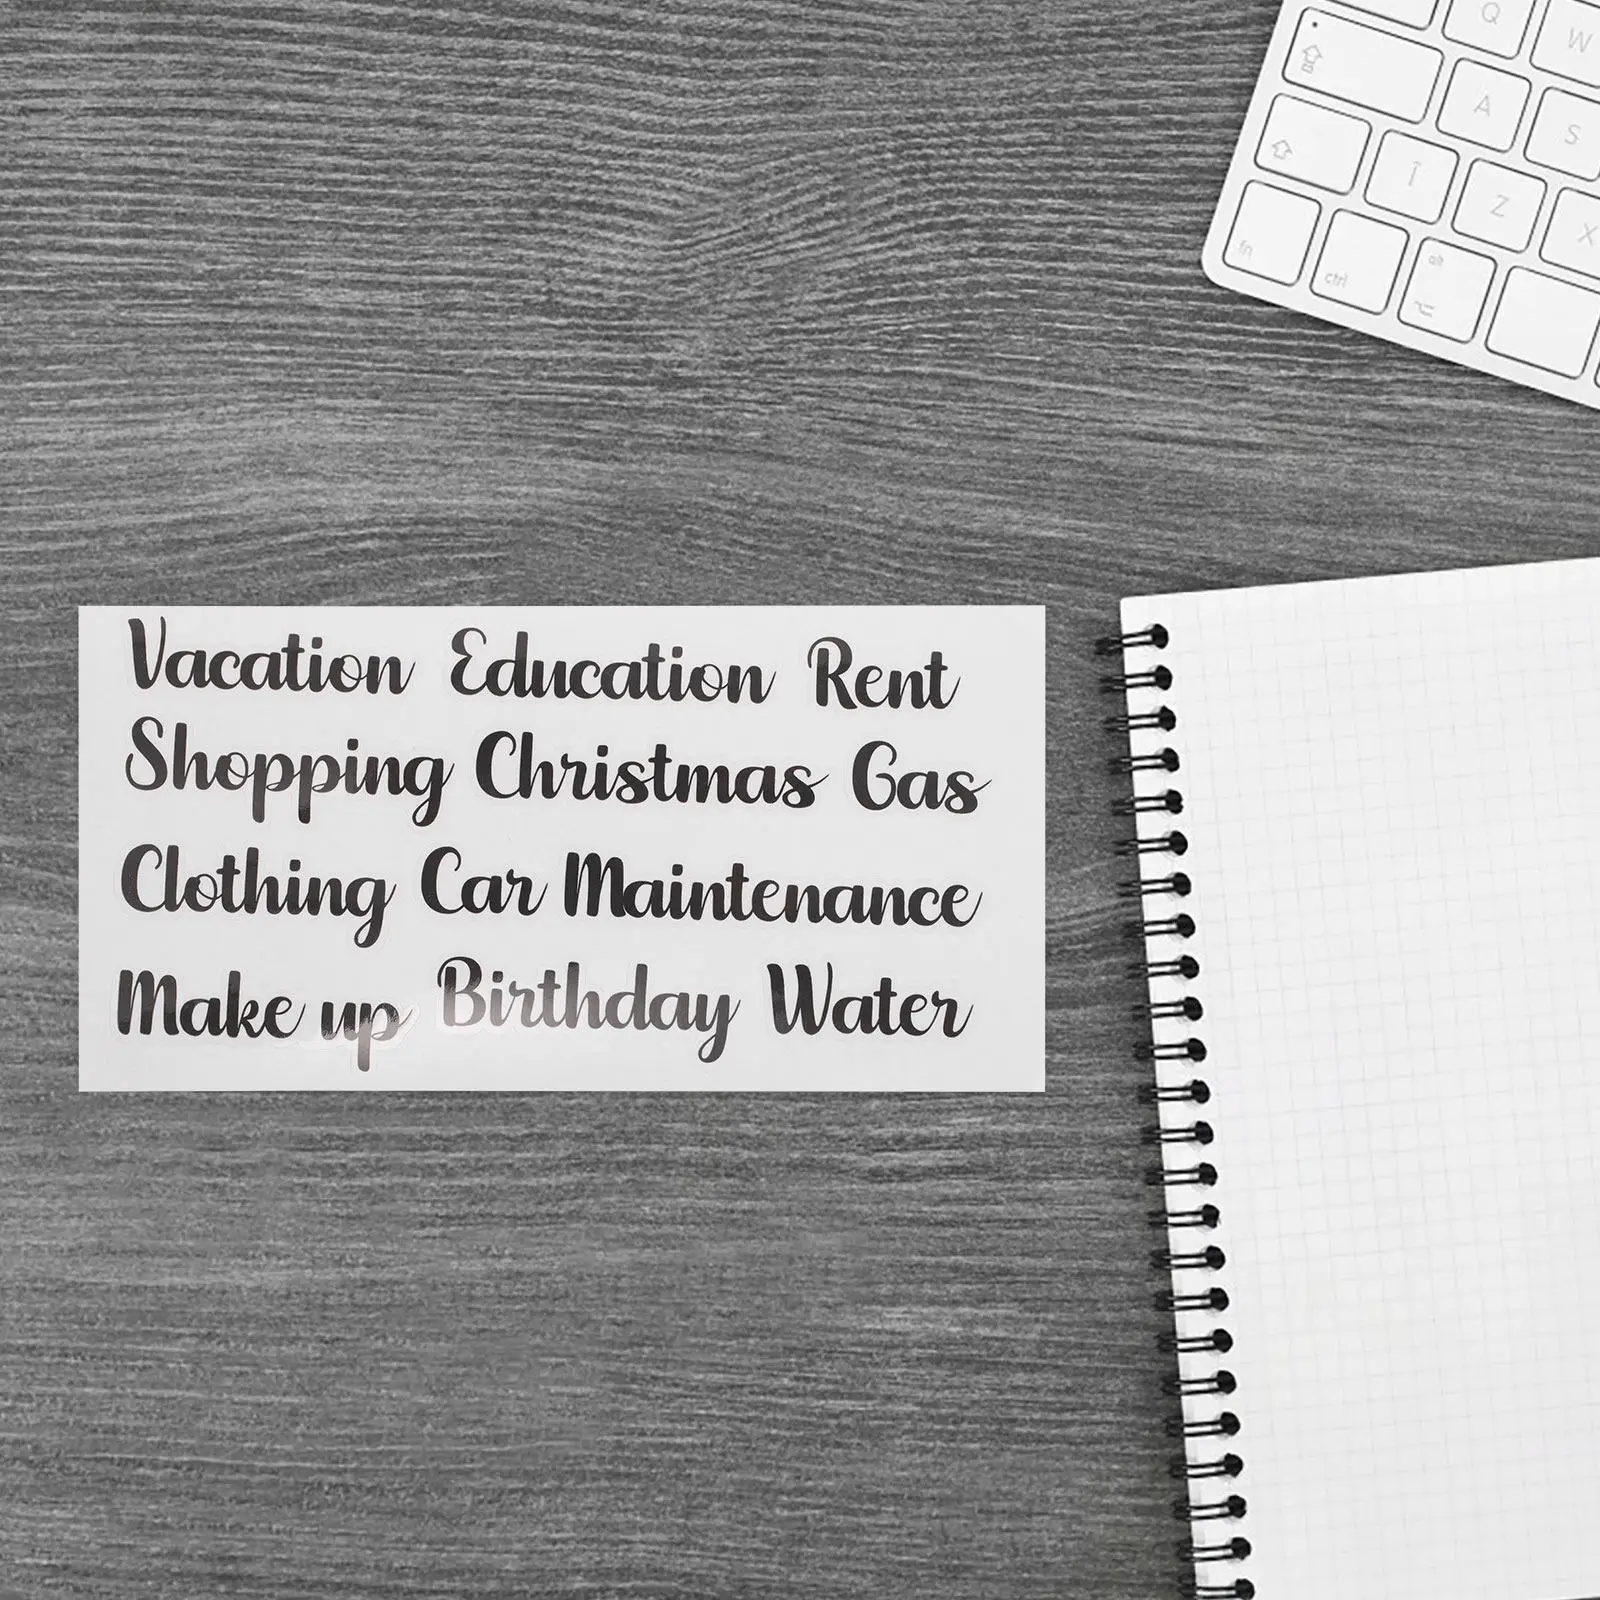 Q W
A S
Î Z X
fn ctrl alt
Vacation Education Rent
Shopping Christmas Gas
Clothing Car Maintenance
Make up Birthday Water